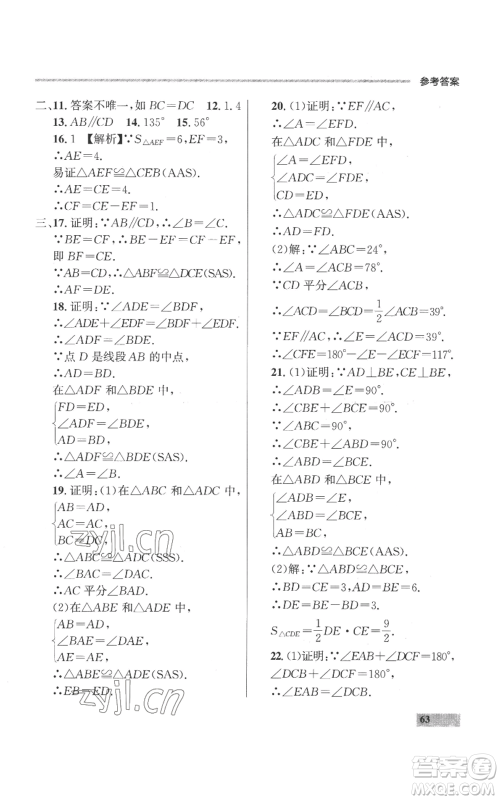 参考答案
二、11. 答案不唯一,如 BC=DC 12. 1.4
13. AB∥CD 14. 135° 15. 56°
16. 1 【解析】∵S△AEF=6,EF=3,
∴AE=4.
易证△AEF≌△CEB(AAS).
∴CE=AE=4.
∴CF=CE-EF=1.
三、17. 证明:∵AB∥CD,∴∠B=∠C.
∵BE=CF,∴BE-EF=CF-EF,
即 BF=CE.
∵AB=CD,∴△ABF≌△DCE(SAS).
∴AF=DE.
18. 证明:∵∠ADE=∠BDF,
∴∠ADE+∠EDF=∠BDF+∠EDF.
∴∠ADF=∠BDE.
∵点 D 是线段 AB 的中点,
∴AD=BD.
在△ADF 和△BDE 中,
FD=ED,
∠ADF=∠BDE,
AD=BD,
∴△ADF≌△BDE(SAS).
∴∠A=∠B.
19. 证明:(1)在△ABC 和△ADC 中,
AB=AD,
AC=AC,
BC=DC,
∴△ABC≌△ADC(SSS).
∴∠BAC=∠DAC.
∴AC 平分∠BAD.
(2)在△ABE 和△ADE 中,
AB=AD,
∠BAE=∠DAE,
AE=AE,
∴△ABE≌△ADE(SAS).
∴EB=ED.
20. (1)证明:∵EF∥AC,
∴∠ACE=∠EFD.
在△ADC 和△FDE 中,
∠A=∠EFD,
∠ADC=∠FDE,
AC=FE,
∴△ADC≌△FDE(AAS).
∴AD=FD.
(2)解:∵∠ABC=24°,
∴∠A=∠ACB=78°.
∵CD 平分∠ACB,
∴∠ACD=∠BCD=1/2∠ACB=39°.
∵EF∥AC,∴∠ACD=∠E=39°.
∴∠CFE=180°-∠E-∠BCD=102°.
21. (1)证明:∵AD⊥BE,CE⊥BE,
∴∠ADE=∠E=90°.
∴∠A+∠ABD=90°.
∵∠ABC=90°,
∴∠ABD+∠BCE=90°.
∴∠A=∠BCE.
在△ABD 和△BCE 中,
∠ADB=∠E,
∠A=∠BCE,
AB=BC,
∴△ABD≌△BCE(AAS).
(2)解:∵△ABD≌△BCE,
∴BD=CE=3.
∴DE=BE-BD=3.
S△CDE=1/2DE·CE=9/2.
22. (1)证明:∵∠EAB+∠DCF=180°,
∠DCB+∠DCF=180°,
∴∠EAB=∠DCB.
63
zyjl.cn
zyjl.cn